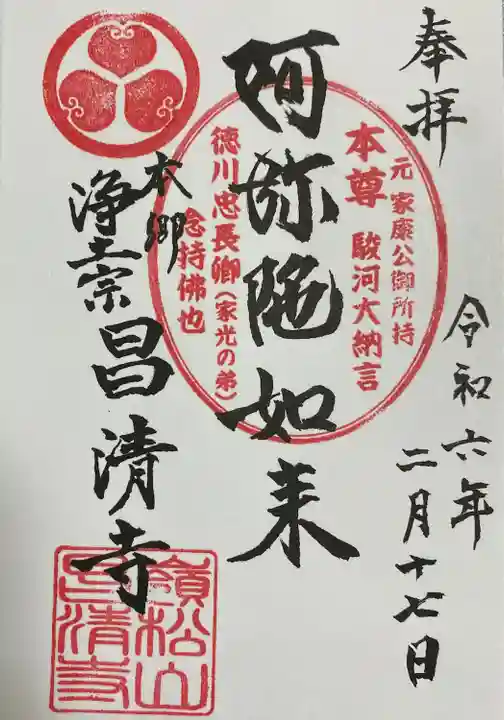 奉拝
令和六年
二月十七日
元 家康公御所持
本尊 駿河大納言
徳川忠長卿(家光の弟)
念持佛也
阿弥陀如来
本郷
浄土宗 昌清寺
嶺松山
昌清寺